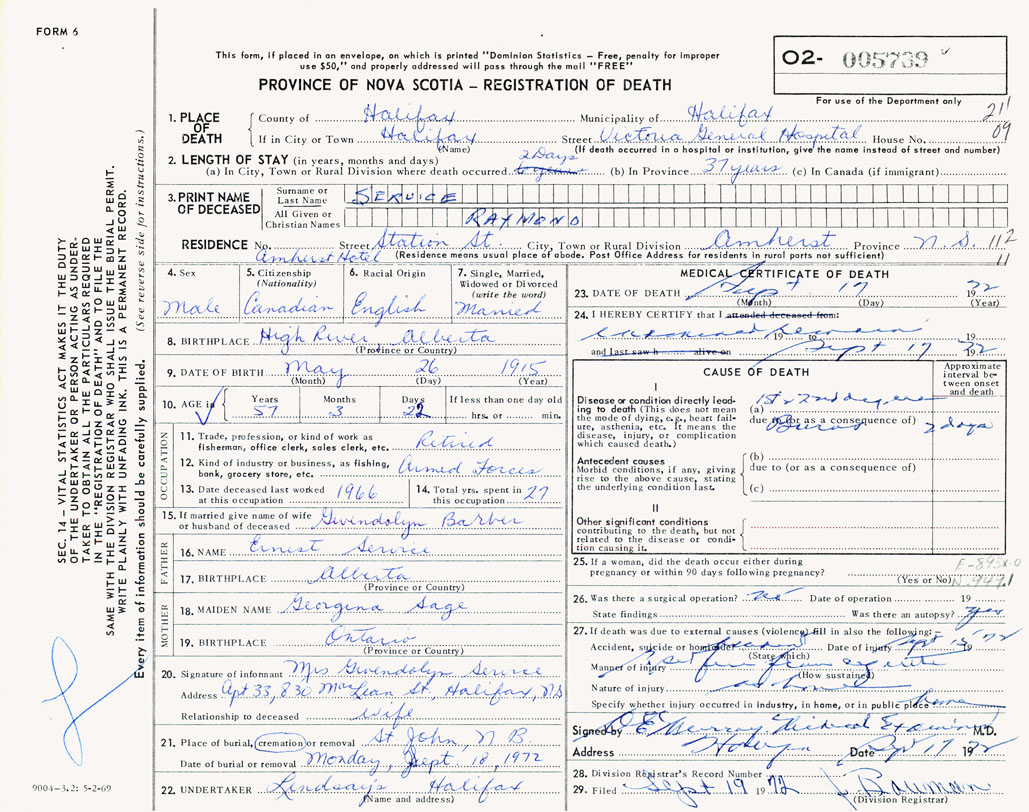 FORM 6
This form, if placed in an envelope, on which is printed "Dominion Statistics – Free, penalty for improper
use $50," and properly addressed will pass through the mail "FREE"
PROVINCE OF NOVA SCOTIA – REGISTRATION OF DEATH
02- 005739
For use of the Department only
1. PLACE OF DEATH County of Halifax Municipality of Halifax 211
If in City or Town Halifax Street Victoria General Hospital House No. 09
(Name) (If death occurred in a hospital or institution, give the name instead of street and number)
2. LENGTH OF STAY (in years, months and days) 2 Days
(a) In City, Town or Rural Division where death occurred (b) In Province 37 years (c) In Canada (if immigrant)
3. PRINT NAME OF DECEASED Surname or Last Name SERVICE
All Given or Christian Names RAYMOND
RESIDENCE No. Street Station St. City, Town or Rural Division Amherst Province N.S. 112
Amherst Hotel (Residence means usual place of abode. Post Office Address for residents in rural parts not sufficient) 11
4. Sex Male
5. Citizenship (Nationality) Canadian
6. Racial Origin English
7. Single, Married, Widowed or Divorced (write the word) Married
8. BIRTHPLACE High River, Alberta
(Province or Country)
9. DATE OF BIRTH May 26 1915
(Month) (Day) (Year)
10. AGE in Years 57 Months 3 Days 22 If less than one day old
hrs. or min.
OCCUPATION
11. Trade, profession, or kind of work as
fisherman, office clerk, sales clerk, etc. Retired
12. Kind of industry or business, as fishing,
bank, grocery store, etc. Armed Forces
13. Date deceased last worked at this occupation 1966
14. Total yrs. spent in this occupation 27
15. If married give name of wife
or husband of deceased Gwendolyn Barber
FATHER
16. NAME Ernest Service
17. BIRTHPLACE Alberta
(Province or Country)
MOTHER
18. MAIDEN NAME Georgina Sage
19. BIRTHPLACE Ontario
(Province or Country)
20. Signature of informant Mrs Gwendolyn Service
Address Apt 33, 830 MacLean St, Halifax, NS
Relationship to deceased wife
21. Place of burial, cremation or removal St John, N.B.
Date of burial or removal Monday, Sept. 18, 1972
22. UNDERTAKER Lindsay's Halifax
(Name and address)
MEDICAL CERTIFICATE OF DEATH
23. DATE OF DEATH Sept 17 1972
(Month) (Day) (Year)
24. I HEREBY CERTIFY that I attended deceased from:
19 to 19
and last saw h alive on Sept 17 1972
CAUSE OF DEATH
Approximate interval between onset and death
I
Disease or condition directly leading to death (This does not mean the mode of dying, e.g., heart failure, asthenia, etc. It means the disease, injury, or complication which caused death.)
(a) 1st & 2nd degree
due to (or as a consequence of) Burns 2 days
Antecedent causes
Morbid conditions, if any, giving rise to the above cause, stating the underlying condition last.
(b)
due to (or as a consequence of)
(c)
II
Other significant conditions contributing to the death, but not related to the disease or condition causing it.
25. If a woman, did the death occur either during
pregnancy or within 90 days following pregnancy?
(Yes or No)
E-893X-0
N.949.1
26. Was there a surgical operation? no Date of operation 19
State findings Was there an autopsy? yes
27. If death was due to external causes (violence) fill in also the following:–
Accident, suicide or homicide accident Date of injury Sept 15 '72
(State which)
Manner of injury
(How sustained)
Nature of injury as above
Specify whether injury occurred in industry, in home, or in public place home
Signed by Murray Medical Examiner M.D.
Address Date Sept 17 1972
28. Division Registrar's Record Number
29. Filed Sept 19 1972 Bauman
(Division Registrar)
SEC. 14 – VITAL STATISTICS ACT MAKES IT THE DUTY
OF THE UNDERTAKER OR PERSON ACTING AS UNDER-
TAKER TO OBTAIN ALL THE PARTICULARS REQUIRED
IN THE "REGISTRATION OF DEATH" AND TO FILE THE
SAME WITH THE DIVISION REGISTRAR WHO SHALL ISSUE THE BURIAL PERMIT.
WRITE PLAINLY WITH UNFADING INK. THIS IS A PERMANENT RECORD.
Every item of information should be carefully supplied. (See reverse side for instructions.)
9004-3.2: 5-2-69